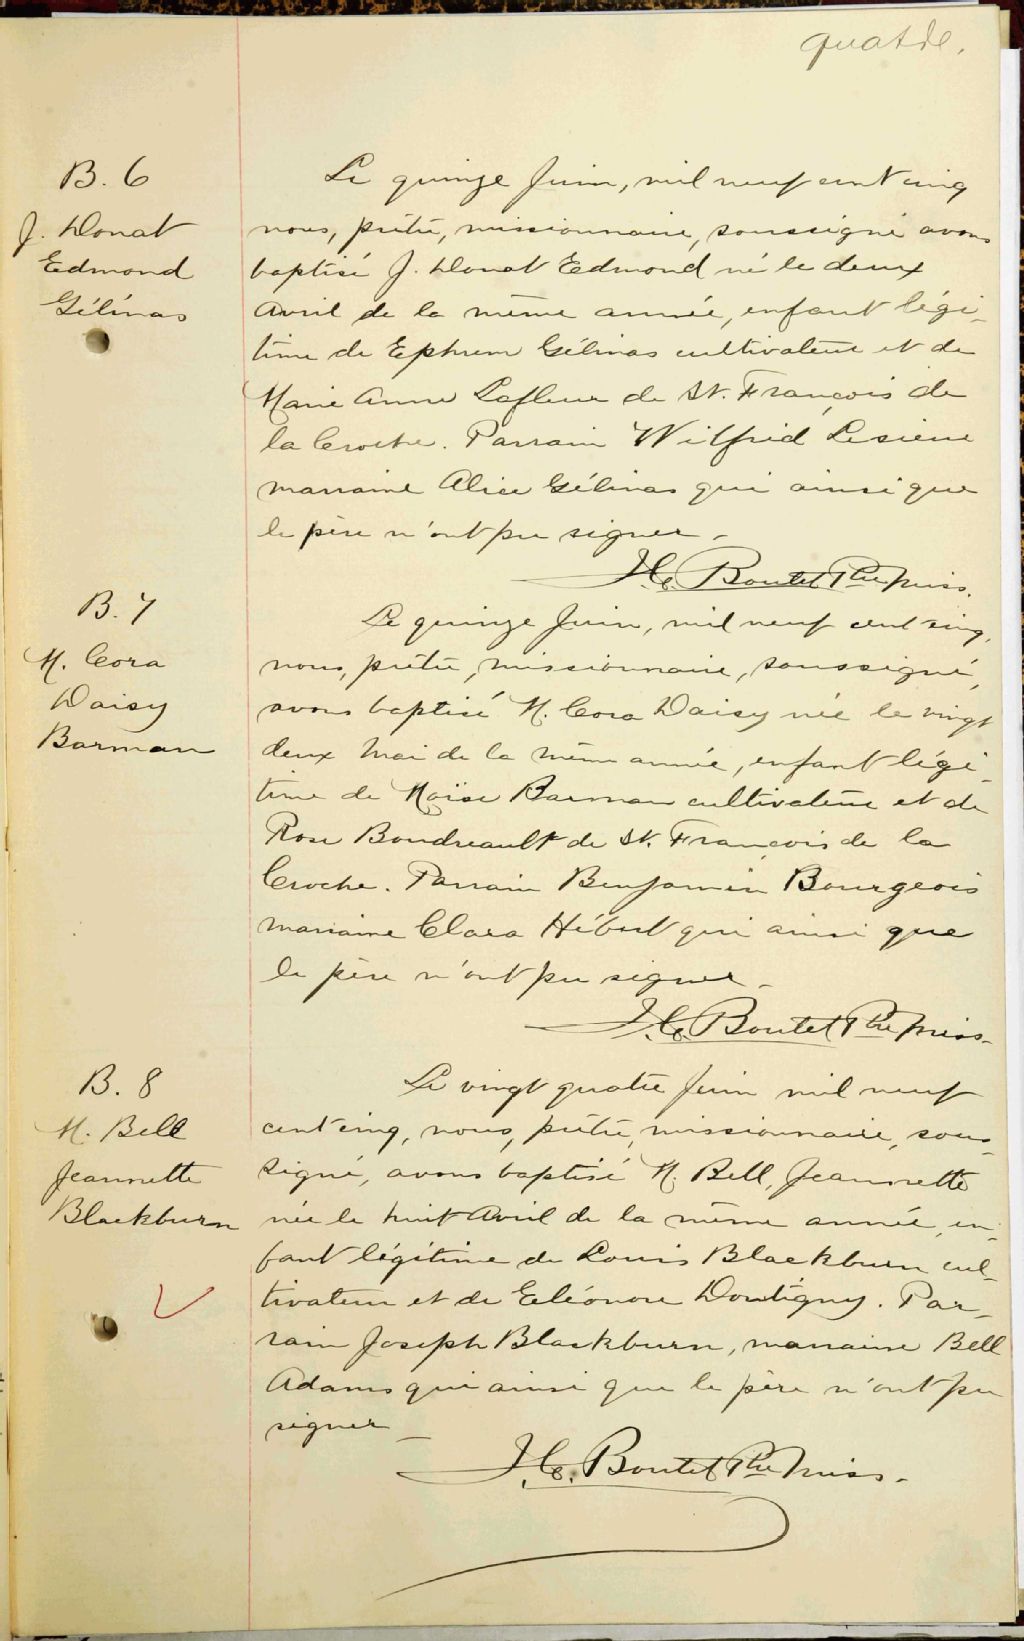 quatre.
B. 6
J. Donat
Edmond
Gélinas
Le quinze Juin, mil neuf cent cinq
nous, prêtre, missionnaire, soussigné avons
baptisé J. Donat Edmond né le deux
Avril de la même année, enfant légi-
time de Ephrem Gélinas cultivateur et de
Marie Anne Lafleur de St. François de
la Croche. Parrain Wilfrid Lesieur
marraine Alice Gélinas qui ainsi que
le père n'ont pu signer.
J. C. Boutet Ptre miss.
B. 7
M. Cora
Daisy
Barman
Le quinze Juin, mil neuf cent cinq,
nous, prêtre, missionnaire, soussigné,
avons baptisé M. Cora Daisy née le vingt
deux Mai de la même année, enfant légi-
time de Moïse Barman cultivateur et de
Rose Boudreault de St. François de la
Croche. Parrain Benjamin Bourgeois
marraine Clara Hébert qui ainsi que
le père n'ont pu signer.
J. C. Boutet Ptre miss.
B. 8
M. Bell
Jeannette
Blackburn
Le vingt quatre Juin mil neuf
cent cinq, nous, prêtre, missionnaire, sous-
signé, avons baptisé M. Bell, Jeannette
née le huit Avril de la même année, en-
fant légitime de Louis Blackburn cul-
tivateur et de Eléonore Doutigny. Par-
rain Joseph Blackburn, marraine Bell
Adams qui ainsi que le père n'ont pu
signer
J. C. Boutet Ptre miss.